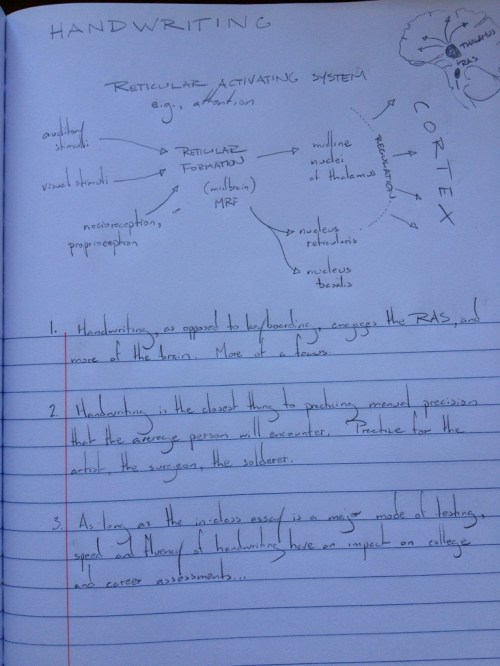 HANDWRITING
THALAMUS
RAS
RETICULAR ACTIVATING SYSTEM
e.g., attention
auditory
stimuli
visual stimuli
nocioreception,
proprioception
RETICULAR
FORMATION
(midbrain)
MRF
midline
nuclei
of thalamus
nucleus
reticularis
nucleus
basalis
REGULATION
CORTEX
1. Handwriting, as opposed to keyboarding, engages the RAS, and
more of the brain. More of a focus
2. Handwriting is the closest thing to practicing manual precision
that the average person will encounter. Practice for the
artist, the surgeon, the solderer.
3. As long as the in-class essay is a major mode of testing,
speed and fluency of handwriting have an impact on college
and career assessments...